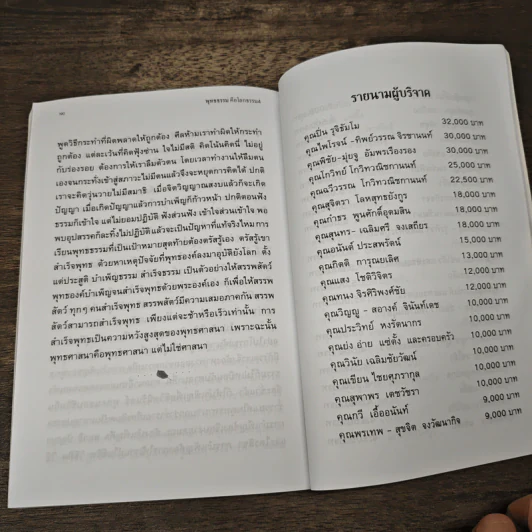 ๒๔
พุทธธรรม คือโลกธรรมล
พูดวิธีกระทำที่ผิดพลาดให้ถูกต้อง คือห้ามเราทำผิดให้กระทำ
ถูกต้อง แต่ละเว้นที่คิดฟุ้งซ่าน ใจไม่มีสติ คิดโน้นคิดนี่ ไม่อยู่
กับร่องรอย ต้องการให้เราลืมตัวตน โดยเวลาทำงานให้ลืมตน
เองจนกระทั่งเข้าสู่สภาวะไม่มีตนแล้วจึงจะหยุดการคิดได้ ปกติ
เราจะคิดวุ่นวายไม่มีสมาธิ เมื่อจิตวิญญาณสงบแล้วก็จะเกิด
ปัญญา เมื่อเกิดปัญญาแล้วการบำเพ็ญก็ก้าวหน้า ปกติตอนฟัง
ธรรมก็เข้าใจ แต่ไม่ยอมปฏิบัติ ฟังส่วนฟัง เข้าใจส่วนเข้าใจ พอ
พบอุปสรรคก็ละทิ้งไม่ปฏิบัติแล้วจะเป็นปัญหาที่แท้จริงไหม การ
เรียนพุทธธรรมที่เป็นเป้าหมายสุดท้ายต้องตรัสรู้เอง ตรัสรู้เขา
สำเร็จพุทธ ด้วยหาเหตุปัจจัยที่พุทธองค์ลงมาอุบัติยังโลก ตั้ง
แต่ประสูติ บำเพ็ญธรรม สำเร็จธรรม เป็นตัวอย่างให้สรรพสัตว์
พุทธองค์บำเพ็ญจนสำเร็จพุทธด้วยพระองค์เอง ก็เพื่อให้สรรพ
สัตว์ ทุก ๆ คนสำเร็จพุทธ สรรพสัตว์มีความเสมอภาคกัน สรรพ
สัตว์สามารถสำเร็จพุทธ เพียงแต่จะช้าหรือเร็วเท่านั้น การ
สำเร็จพุทธเป็นความหวังสูงสุดของพุทธศาสนา เพราะฉะนั้น
พุทธศาสนาคือพุทธศาสนา แต่ไม่ใช่ศาสนา
รายนามผู้บริจาค
คุณปิ่น รุจิธัมโม 32,000 บาท
คุณไพโรจน์ -ทิพย์วรรณ จิรชานนท์ 30,000 บาท
คุณพิชัย-มุ่ยฐู อัมพรเรืองรอง 30,000 บาท
คุณโกวิทย์ โกวิทวณิชกานนท์ 25,000 บาท
คุณฉวีวรรณ โกวิทวณิชกานนท์ 22,500 บาท
คุณสุจิตรา โลหสุทธยังกูร 18,000 บาท
คุณกำธร พูนศักดิ์อุดมสิน 18,000 บาท
คุณสุนทร- เฉลิมศรี จงเสถียร 18,000 บาท
คุณอนันต์ ประสพรัตน์ 15,000 บาท
คุณกิตติ การุณยเลิศ 13,000 บาท
คุณแสง โชติวิจิตร 12,000 บาท
คุณทนง จิรศิริพงศ์ชัย 12,000 บาท
คุณวิญญู - สอางค์ จินันท์เดช 10,000 บาท
คุณประวิทย์ หงรัตนากร 10,000 บาท
คุณย่ง อ่าย แซ่ตั้ง และครอบครัว 10,000 บาท
คุณวินัย เฉลิมชัยวัฒน์ 10,000 บาท
คุณเขียน ไชยศุภรากุล 10,000 บาท
คุณสุพาพร เดชวัชรา 10,000 บาท
คุณกวี เอื้ออนันท์ 9,000 บาท
คุณพรเทพ - สุขจิต จงวัฒนากิจ 9,000 บาท